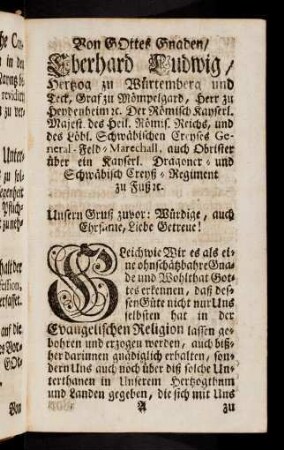 Von GOttes Gnaden/
Eberhard Ludwig/
Hertzog zu Würtemberg und
Teck, Graf zu Mömpelgard, Herr zu
Heydenheim ꝛc. Der Römisch Kayserl.
Majest. des Heil. Römis. Reichs, und
des Löbl. Schwäbischen Creyses Ge-
neral-Feld-Marechall, auch Obrister
über ein Kayserl. Dragoner- und
Schwäbisch Creyß-Regiment
zu Fuß ꝛc.
Unsern Gruß zuvor: Würdige, auch
Ehrsame, Liebe Getreue!
GLeichwie Wir es als ei-
ne ohnschätzbahre Gna-
de und Wohlthat Got-
tes erkennen, daß des-
sen Güte nicht nur Uns
selbsten hat in der
Evangelischen Religion lassen ge-
bohren und erzogen werden, auch biß-
her darinnen gnädiglich erhalten, son-
dern Uns auch noch über diß solche Un-
terthanen in Unserem Hertzogthum
und Landen gegeben, die sich mit Uns
A zu